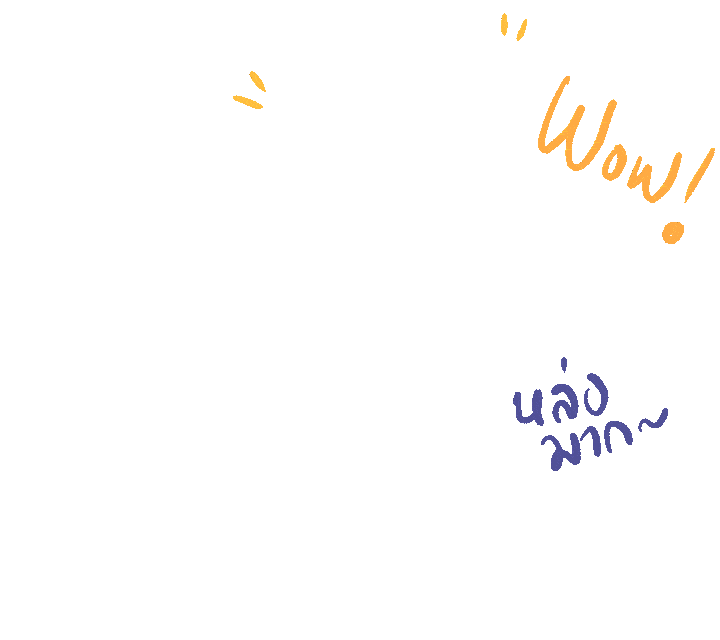 Wow!
หล่อ
มาก~